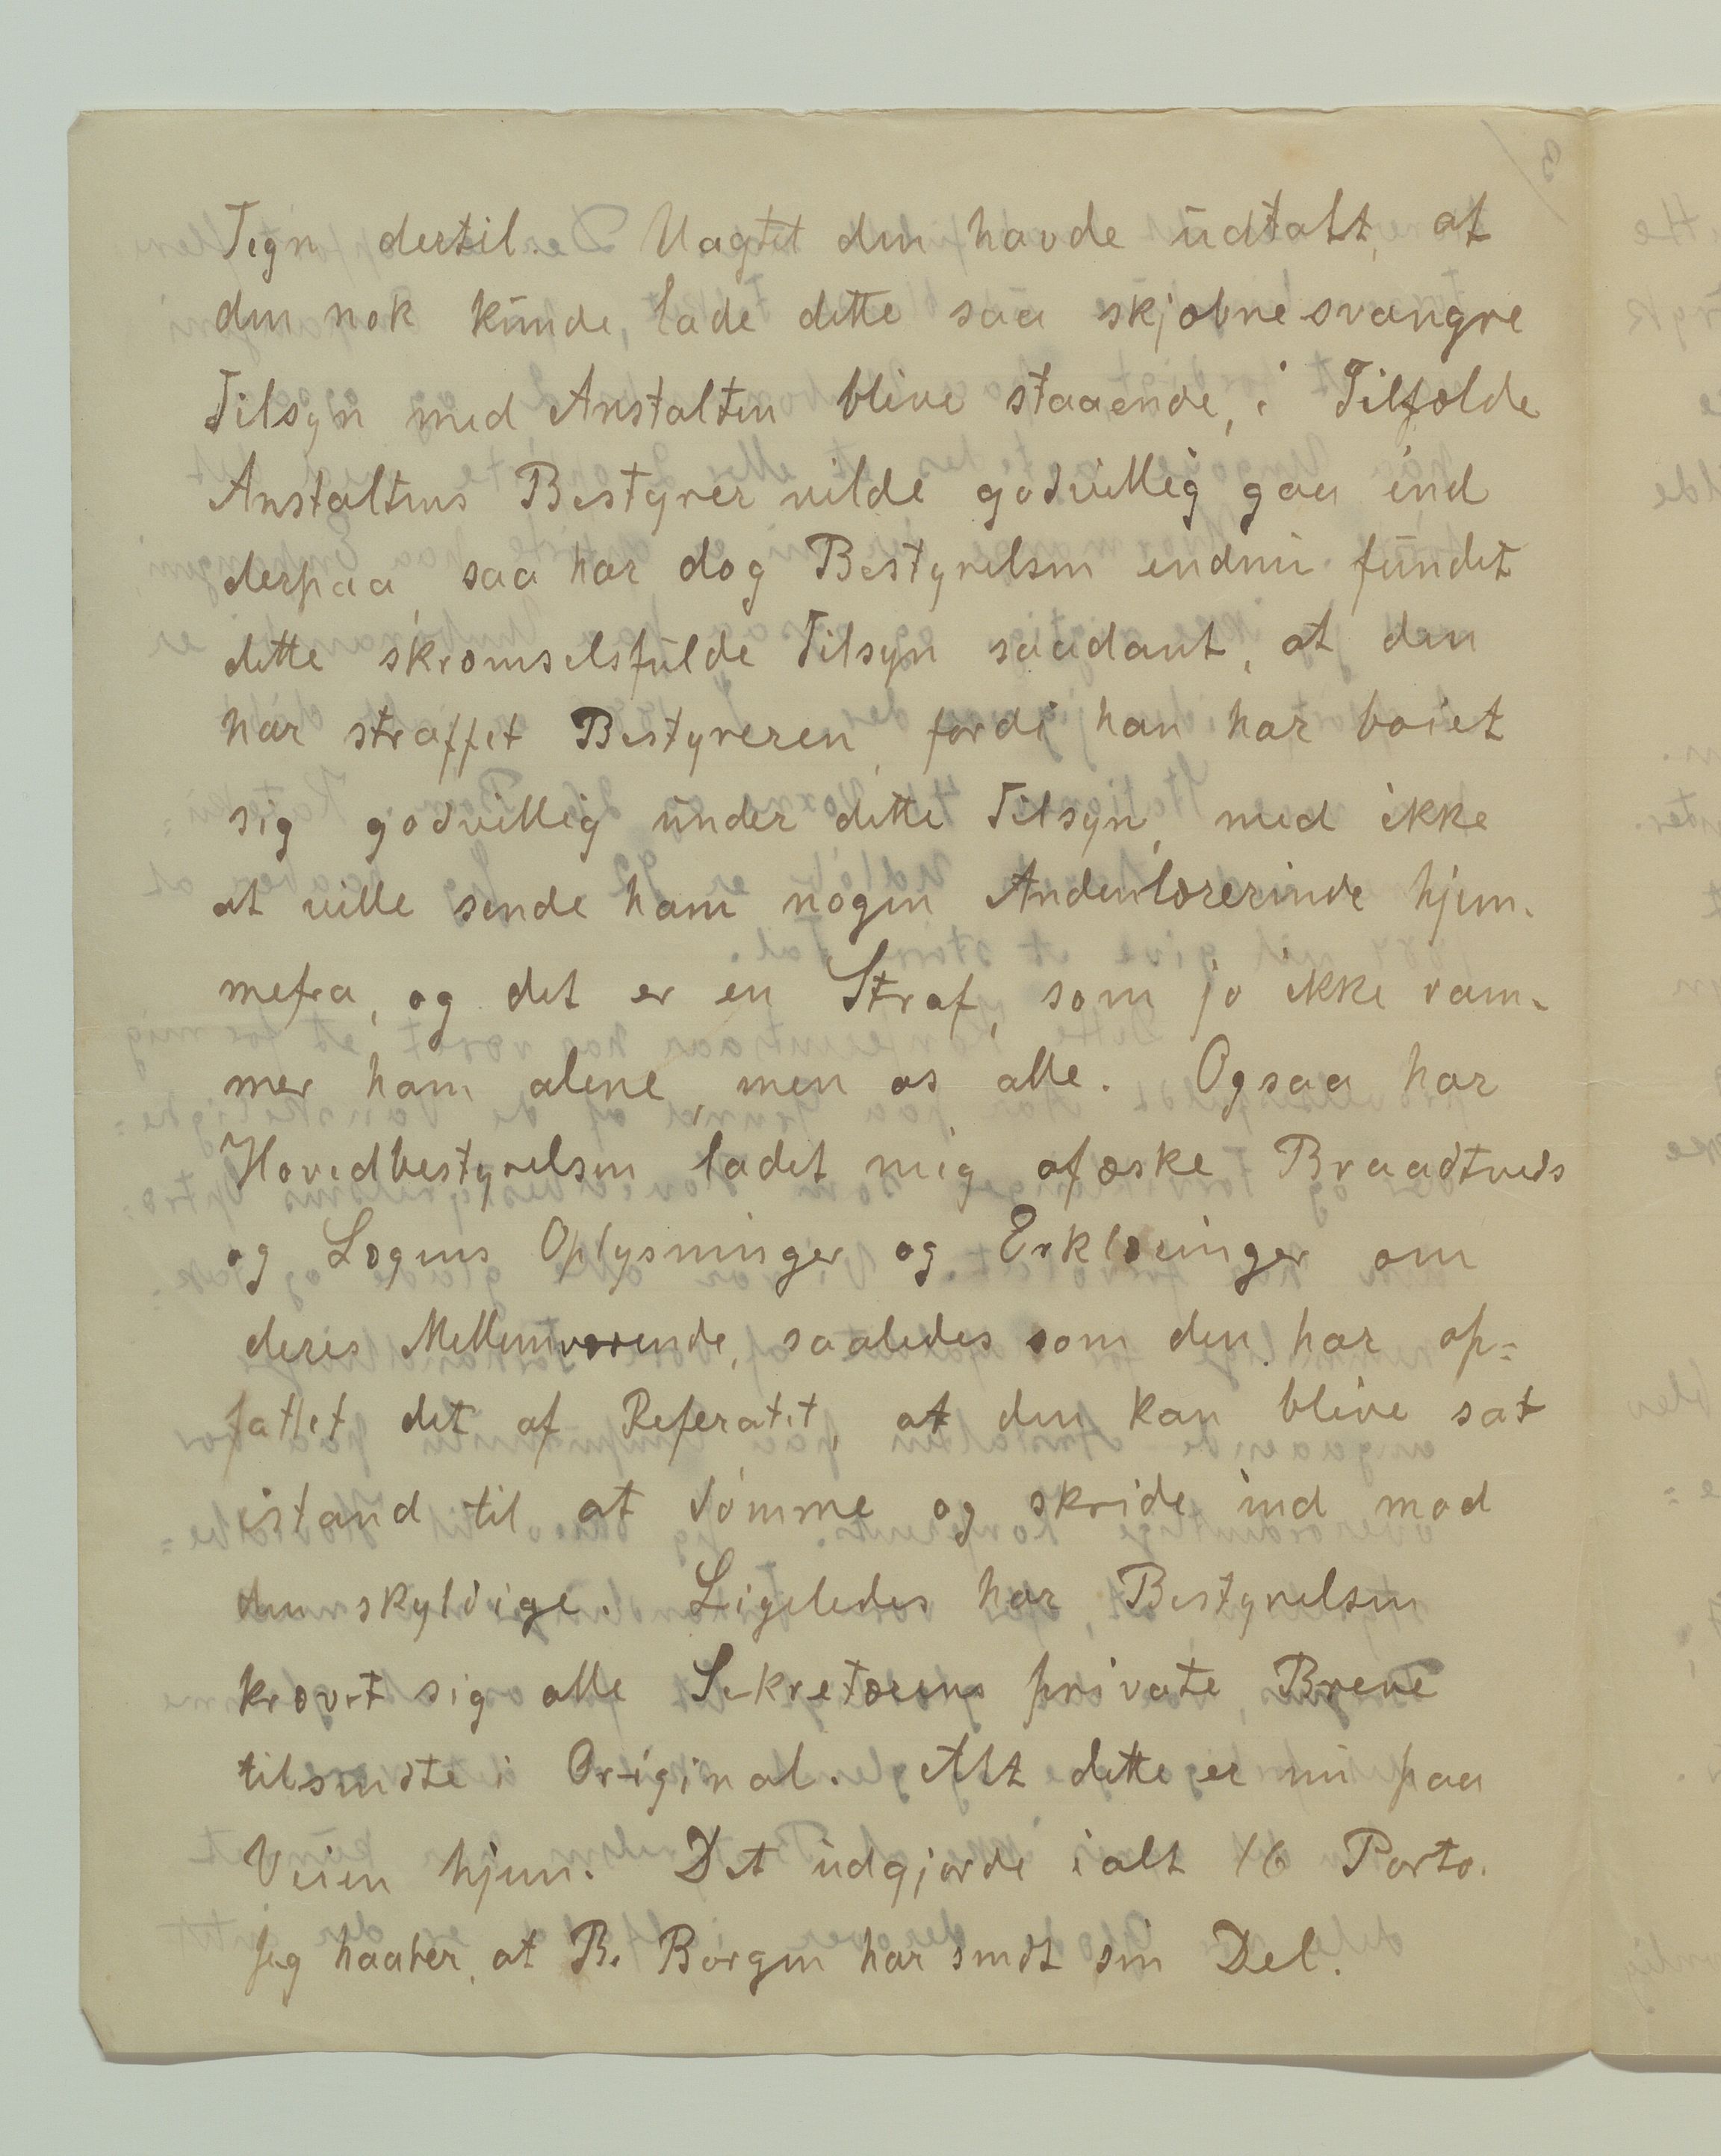 Tegn dertil. Uagtet den havde udtalt, at
den nok kunde, lade dette saa skjæbnesvangre
Tilsyn med Anstalten blive staaende, i Tilfælde
Anstaltens Bestyrer vilde godvillig gaa ind
derpaa, saa har dog Bestyrelsen endnu fundet
dette skræmselsfulde Tilsyn saadant, at den
har straffet Bestyreren, fordi han har bøiet
sig godvillig under dette Tilsyn, med ikke
at ville sende ham nogen Andenlærerinde hjem-
mefra, og det er en Straf, som jo ikke ram-
mer ham alene, men os alle. Ogsaa har
Hovedbestyrelsen ladet mig afæske Braadtveds
og Løgens Oplysninger og Erklæringer om
deres Mellemværende, saaledes som den har op=
fattet det af Referatet, at den kan blive sat
istand til at dømme og skride ind mod
den skyldige. Ligeledes har Bestyrelsen
krævet sig alle Sekretærens private Breve
tilsendte i Original. Alt dette er nu paa
Veien hjem. Det udgjorde ialt 16 Porto.
Jeg haaber, at Br. Borgen har sendt sin Del.